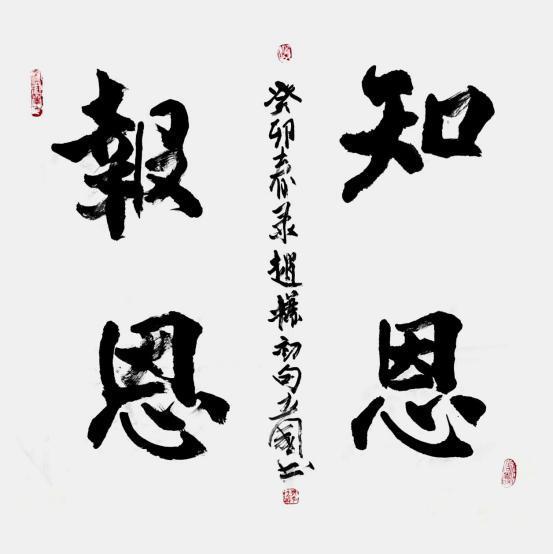 知恩
報恩
癸卯春录趙樸初句立國书